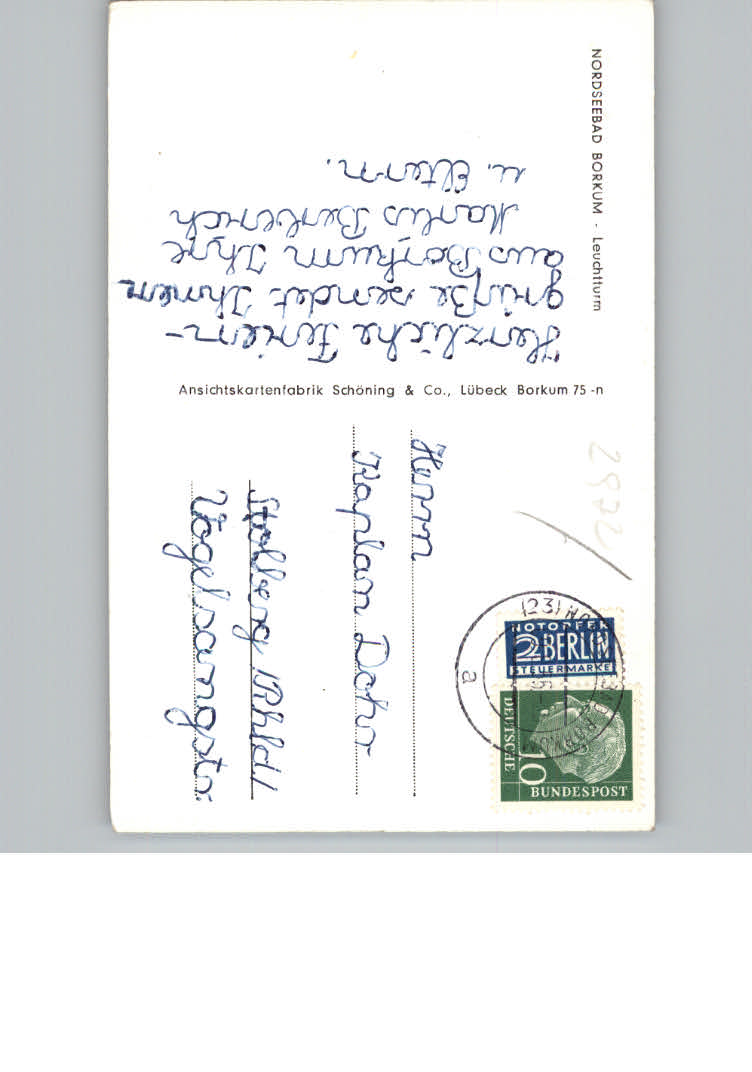 NORDSEEBAD BORKUM - Leuchtturm
Herzliche Ferien-
grüße sendet Ihnen
aus Borkum Ihre
u. Eltern.
Ansichtskartenfabrik Schöning & Co., Lübeck Borkum 75 -n
Herrn
Kaplan Dohr
Stolberg Rhld/
Vogelsangstr.
2972
(23)
a
NOTOPFER
2 BERLIN
STEUERMARKE
DEUTSCHE
BUNDESPOST
10